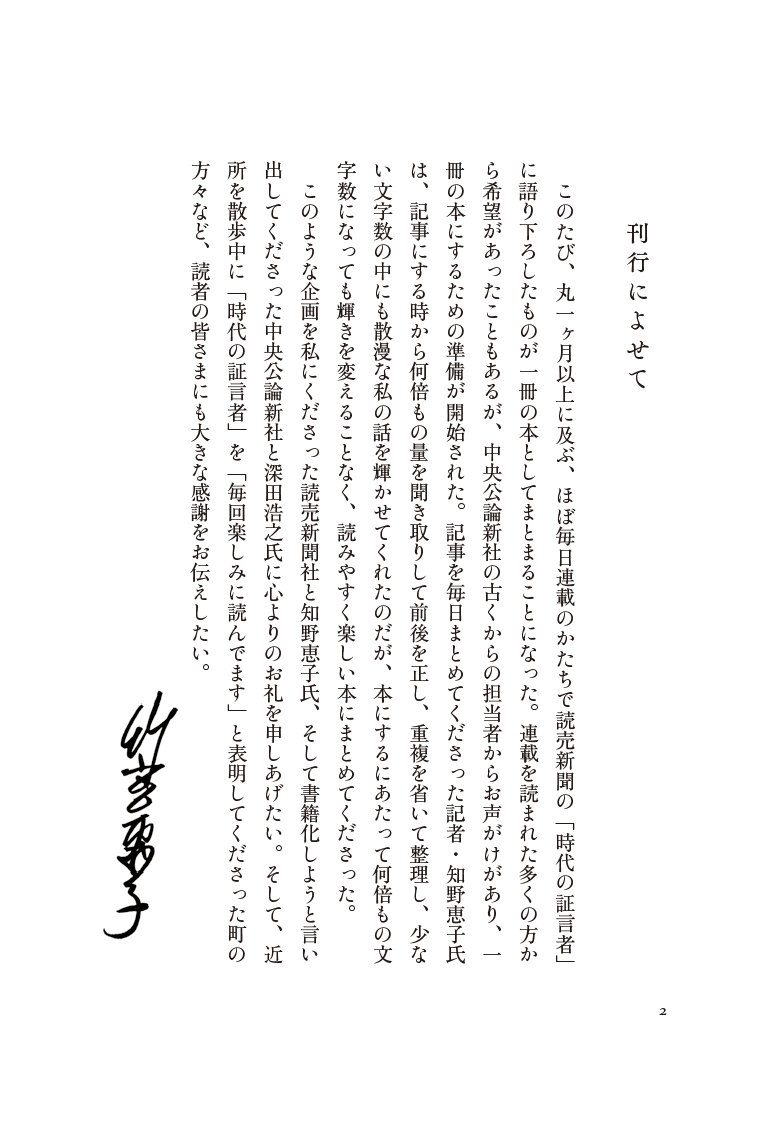 刊行によせて
このたび、丸一ヶ月以上に及ぶ、ほぼ毎日連載のかたちで読売新聞の「時代の証言者」
に語り下ろしたものが一冊の本としてまとまることになった。連載を読まれた多くの方か
ら希望があったこともあるが、中央公論新社の古くからの担当者からお声がけがあり、一
冊の本にするための準備が開始された。記事を毎日まとめてくださった記者・知野恵子氏
は、記事にする時から何倍もの量を聞き取りして前後を正し、重複を省いて整理し、少な
い文字数の中にも散漫な私の話を輝かせてくれたのだが、本にするにあたって何倍もの文
字数になっても輝きを変えることなく、読みやすく楽しい本にまとめてくださった。
このような企画を私にくださった読売新聞社と知野恵子氏、そして書籍化しようと言い
出してくださった中央公論新社と深田浩之氏に心よりのお礼を申しあげたい。そして、近
所を散歩中に「時代の証言者」を「毎回楽しみに読んでます」と表明してくださった町の
方々など、読者の皆さまにも大きな感謝をお伝えしたい。
竹宮惠子
2